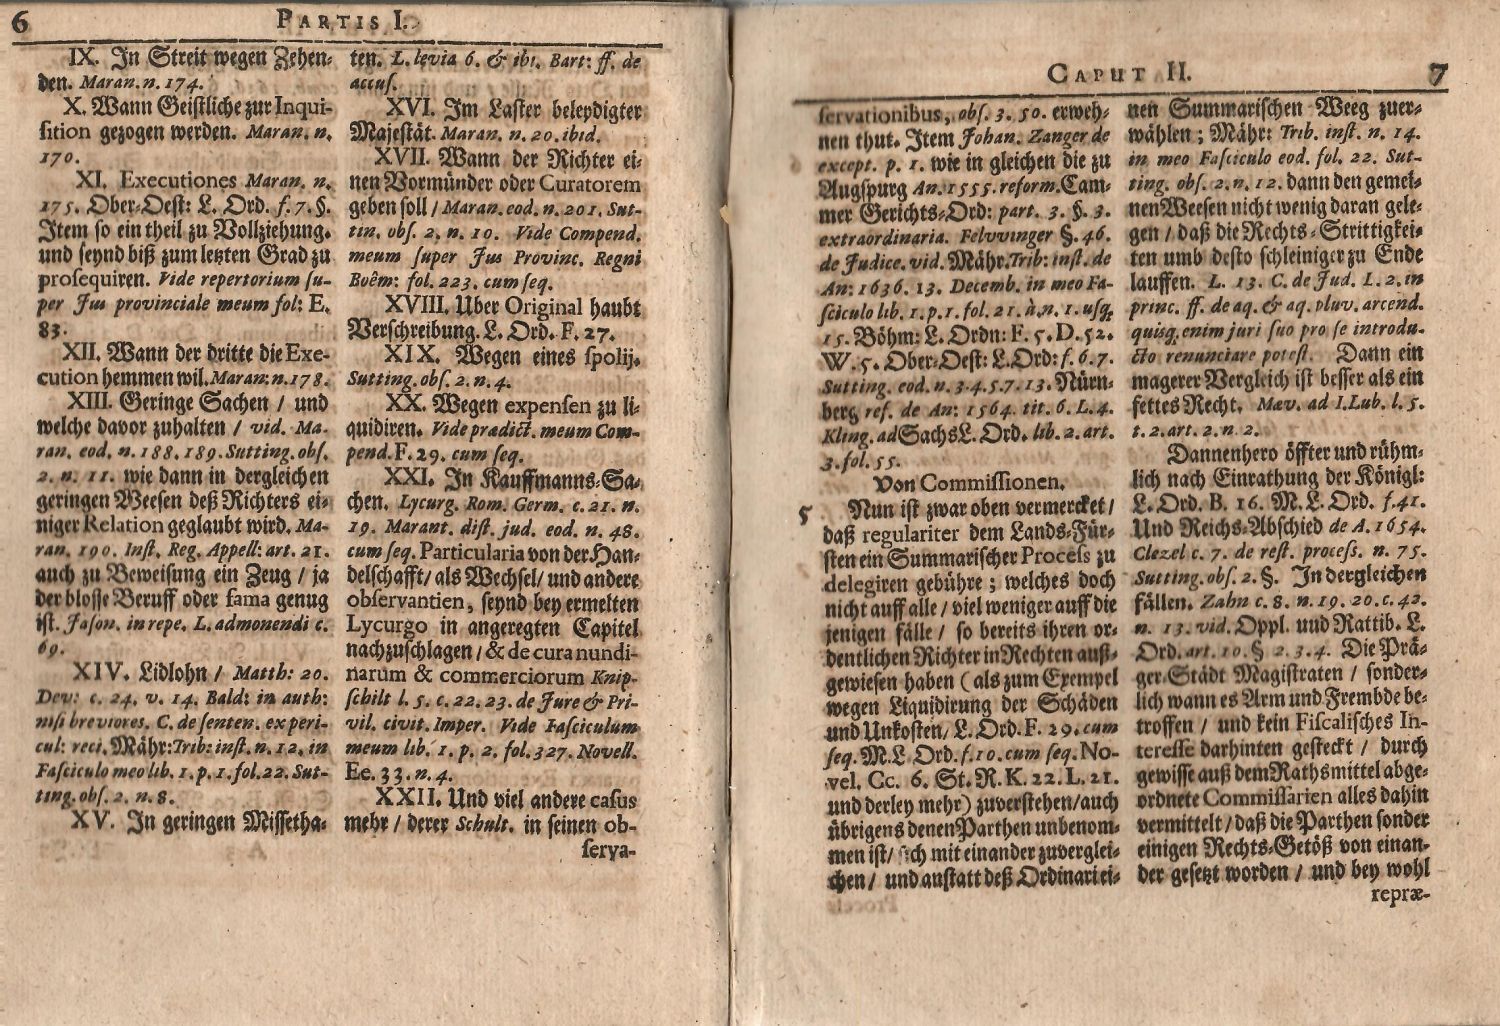 6
PARTIS I.
IX. In Streit wegen Zehen-
den. Maran. n. 174.
X. Wann Geistliche zur Inqui-
sition gezogen werden. Maran. n.
170.
XI. Executiones Maran. n.
175. Ober-Oest: L. Ord. f. 7. §.
Item so ein theil zu Vollziehung.
und seynd biß zum letzten Grad zu
prosequiren. Vide repertorium su-
per Jus provinciale meum fol: E.
83.
XII. Wann der dritte die Exe-
cution hemmen wil. Maran: n. 178.
XIII. Geringe Sachen / und
welche davor zuhalten / vid. Ma-
ran. eod. n. 188. 189. Sutting. obs.
2. n. 11. wie dann in dergleichen
geringen Weesen deß Richters ei-
niger Relation geglaubt wird. Ma-
ran. 190. Inst. Reg. Appell: art. 21.
auch zu Beweisung ein Zeug / ja
der blosse Beruff oder fama genug
ist. Jason. in repe. L. admonendi c.
69.
XIV. Lidlohn / Matth: 20.
Dev: c. 24. v. 14. Bald: in auth:
nisi breviores. C. de senten. ex peri-
cul: reci. Mähr: Trib: inst. n. 12. in
Fasciculo meo lib. 1. p. 1. fol. 22. Sut-
ting. obs. 2. n. 8.
XV. In geringen Missetha-
ten. L. levia 6. & ibi. Bart: ff. de
accus.
XVI. Im Laster beleydigter
Majestät. Maran. n. 20. ibid.
XVII. Wann der Richter ei-
nen Vormünder oder Curatorem
geben soll / Maran. eod. n. 201. Sut-
tin. obs. 2. n. 10. Vide Compend.
meum super Jus Provinc. Regni
Boêm: fol. 223. cum seq.
XVIII. Uber Original haubt
Verschreibung. L. Ord. F. 27.
XIX. Wegen eines spolij.
Sutting. obs. 2. n. 4.
XX. Wegen expensen zu li-
quidiren. Vide prædict. meum Com-
pend. F. 29. cum seq.
XXI. In Kauffmanns-Sa-
chen. Lycurg. Rom. Germ. c. 21. n.
19. Marant. dist. jud. eod. n. 48.
cum seq. Particularia von der Han-
delschafft / als Wechsel / und andere
observantien, seynd bey ermelten
Lycurgo in angeregten Capitel
nachzuschlagen / & de cura nundi-
narum & commerciorum Knip-
schilt l. 5. c. 22. 23. de Jure & Pri-
vil. civit. Imper. Vide Fasciculum
meum lib. 1. p. 2. fol. 327. Novell.
Ee. 33. n. 4.
XXII. Und viel andere casus
mehr / derer Schult. in seinen ob-
serva-
CAPUT II.
7
servationibus, obs. 3. 50. erweh-
nen thut. Item Johan. Zanger de
except. p. 1. wie in gleichen die zu
Augspurg An. 1555. reform. Cam-
mer Gerichts-Ord: part. 3. §. 3.
extraordinaria. Felvvinger §. 46.
de Judice. vid. Mähr. Trib: inst. de
An: 1636. 13. Decemb. in meo Fa-
sciculo lib. 1. p. 1. fol. 21. à n. 1. usq
15. Böhm: L. Ordn: F. 5. D. 52.
W. 5. Ober-Oest: L. Ord: f. 6. 7.
Sutting. eod. n. 3. 4. 5. 7. 13. Nürn-
berg ref. de An: 1564. tit. 6. L. 4.
Kling. ad Sachs L. Ord. lib. 2. art.
3. fol. 55.
Von Commissionen.
5 Nun ist zwar oben vermercket /
daß regulariter dem Lands-Für-
sten ein Summarischer Process zu
delegiren gebühre ; welches doch
nicht auff alle / viel weniger auff die
jenigen fälle / so bereits ihren or-
dentlichen Richter in Rechten auß-
gewiesen haben ( als zum Exempel
wegen Liquidirung der Schäden
und Unkosten / L. Ord. F. 29. cum
seq. M. L. Ord. f. 10. cum seq. No-
vel. Cc. 6. St. R. K. 22. L. 21.
und derley mehr) zuverstehen / auch
übrigens denen Parthen unbenom-
men ist / sich mit einander zuverglei-
chen / und anstatt deß Ordinari ei-
nen Summarischen Weeg zuer-
wählen ; Mähr: Trib. inst. n. 14.
in meo Fasciculo eod. fol. 22. Sut-
ting. obs. 2. n. 12. dann den gemei-
nen Weesen nicht wenig daran gele-
gen / daß die Rechts-Strittigkei-
ten umb desto schleiniger zu Ende
lauffen. L. 13. C. de Jud. L. 2. in
princ. ff. de aq. & aq. pluv. arcend.
quisq. enim juri suo pro se introdu-
cto renunciare potest. Dann ein
magerer Vergleich ist besser als ein
fettes Recht. Mæv. ad I. Lub. l. 5.
t. 2. art. 2. n. 2.
Dannenhero öffter und rühm-
lich nach Einrathung der Königl:
L. Ord. B. 16. M. L. Ord. f. 41.
Und Reichs-Abschied de A. 1654.
Clezel c. 7. de rest. process. n. 75.
Sutting. obs. 2. §. In dergleichen
fällen. Zahn c. 8. n. 19. 20. c. 42.
n. 13. vid. Oppl. und Rattib. L.
Ord. art. 10. § 2. 3. 4. Die Prä-
ger-Städt Magistraten / sonder-
lich wann es Arm und Frembde be-
troffen / und kein Fiscalisches In-
teresse darhinten gesteckt / durch
gewisse auß dem Rathsmittel abge-
ordnete Commissarien alles dahin
vermittelt / daß die Parthen sonder
einigen Rechts-Getöß von einan-
der gesetzt worden / und bey wohl
repræ-